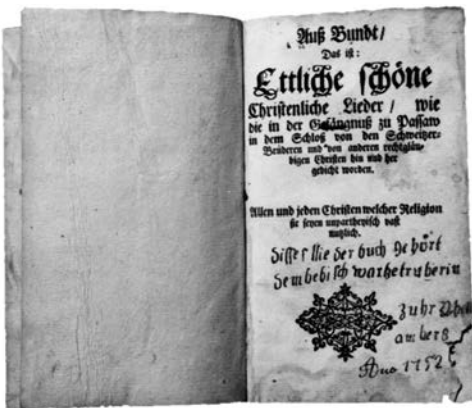 Auß Bundt /
Das ist:
Ettliche schöne
Christenliche Lieder / wie
die in der Gefängnuß zu Passaw
in dem Schloß von den Schweitzer-
Brüderen und von anderen rechtgläu-
bigen Christen hin und her
gedicht worden.
Allen und jeden Christen welcher Religion
sie seyen unpartheyisch vast
nutzlich.
Disses lie der buch gehört
zuhr
am berg
Ano 1752